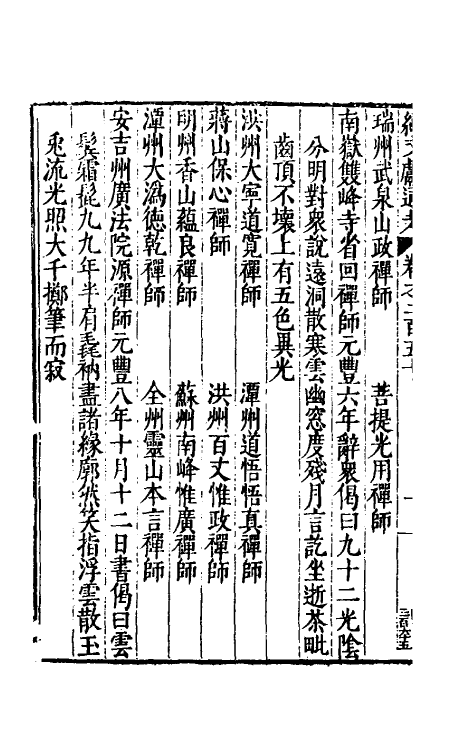 續文獻通考 卷之二百五十
瑞州武泉山政禪師 菩提光用禪師
南嶽雙峰寺省回禪師元豐六年辭衆偈曰九十二光陰
分明對衆說遠洞散寒雲幽窓度殘月言訖坐逝茶毗
齒頂不壞上有五色異光
洪州大寧道寬禪師 潭州道悟悟真禪師
蔣山保心禪師 洪州百丈惟政禪師
明州香山蘊良禪師 蘇州南峰惟廣禪師
潭州大潙德乾禪師 全州靈山本言禪師
安吉州廣法院源禪師元豐八年十月十二日書偈曰雲
鬢霜髭九九年半肩毳衲盡諸緣廓然笑指浮雲散玉
兎流光照大千擲筆而寂